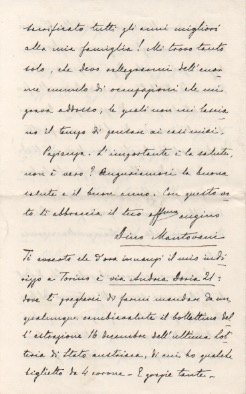 sacrificato tutti gli anni migliori
alla mia famiglia! Mi trovo tanto
solo, che devo rallegrarmi dell'enor
me cumulo di occupazioni che mi
grava addosso, le quali non mi lascia
no il tempo di pensare ai casi miei.
Pazienza. L'importante è la salute,
non è vero? Auguriamoci la buona
salute e il buon animo. Con questo vo
to ti abbraccia il tuo affmo cugino
Dino Mantovani
Ti avverto che d'ora innanzi il mio indi
rizzo a Torino è via Andrea Doria 21:
dove ti pregherei di farmi mandare da un
qualunque cambiavalute il bollettino del
l'estrazione 16 dicembre dell'ultima lot
teria di Stato austriaca, di cui ho qualche
biglietto da 4 corone. - E grazie tante. -